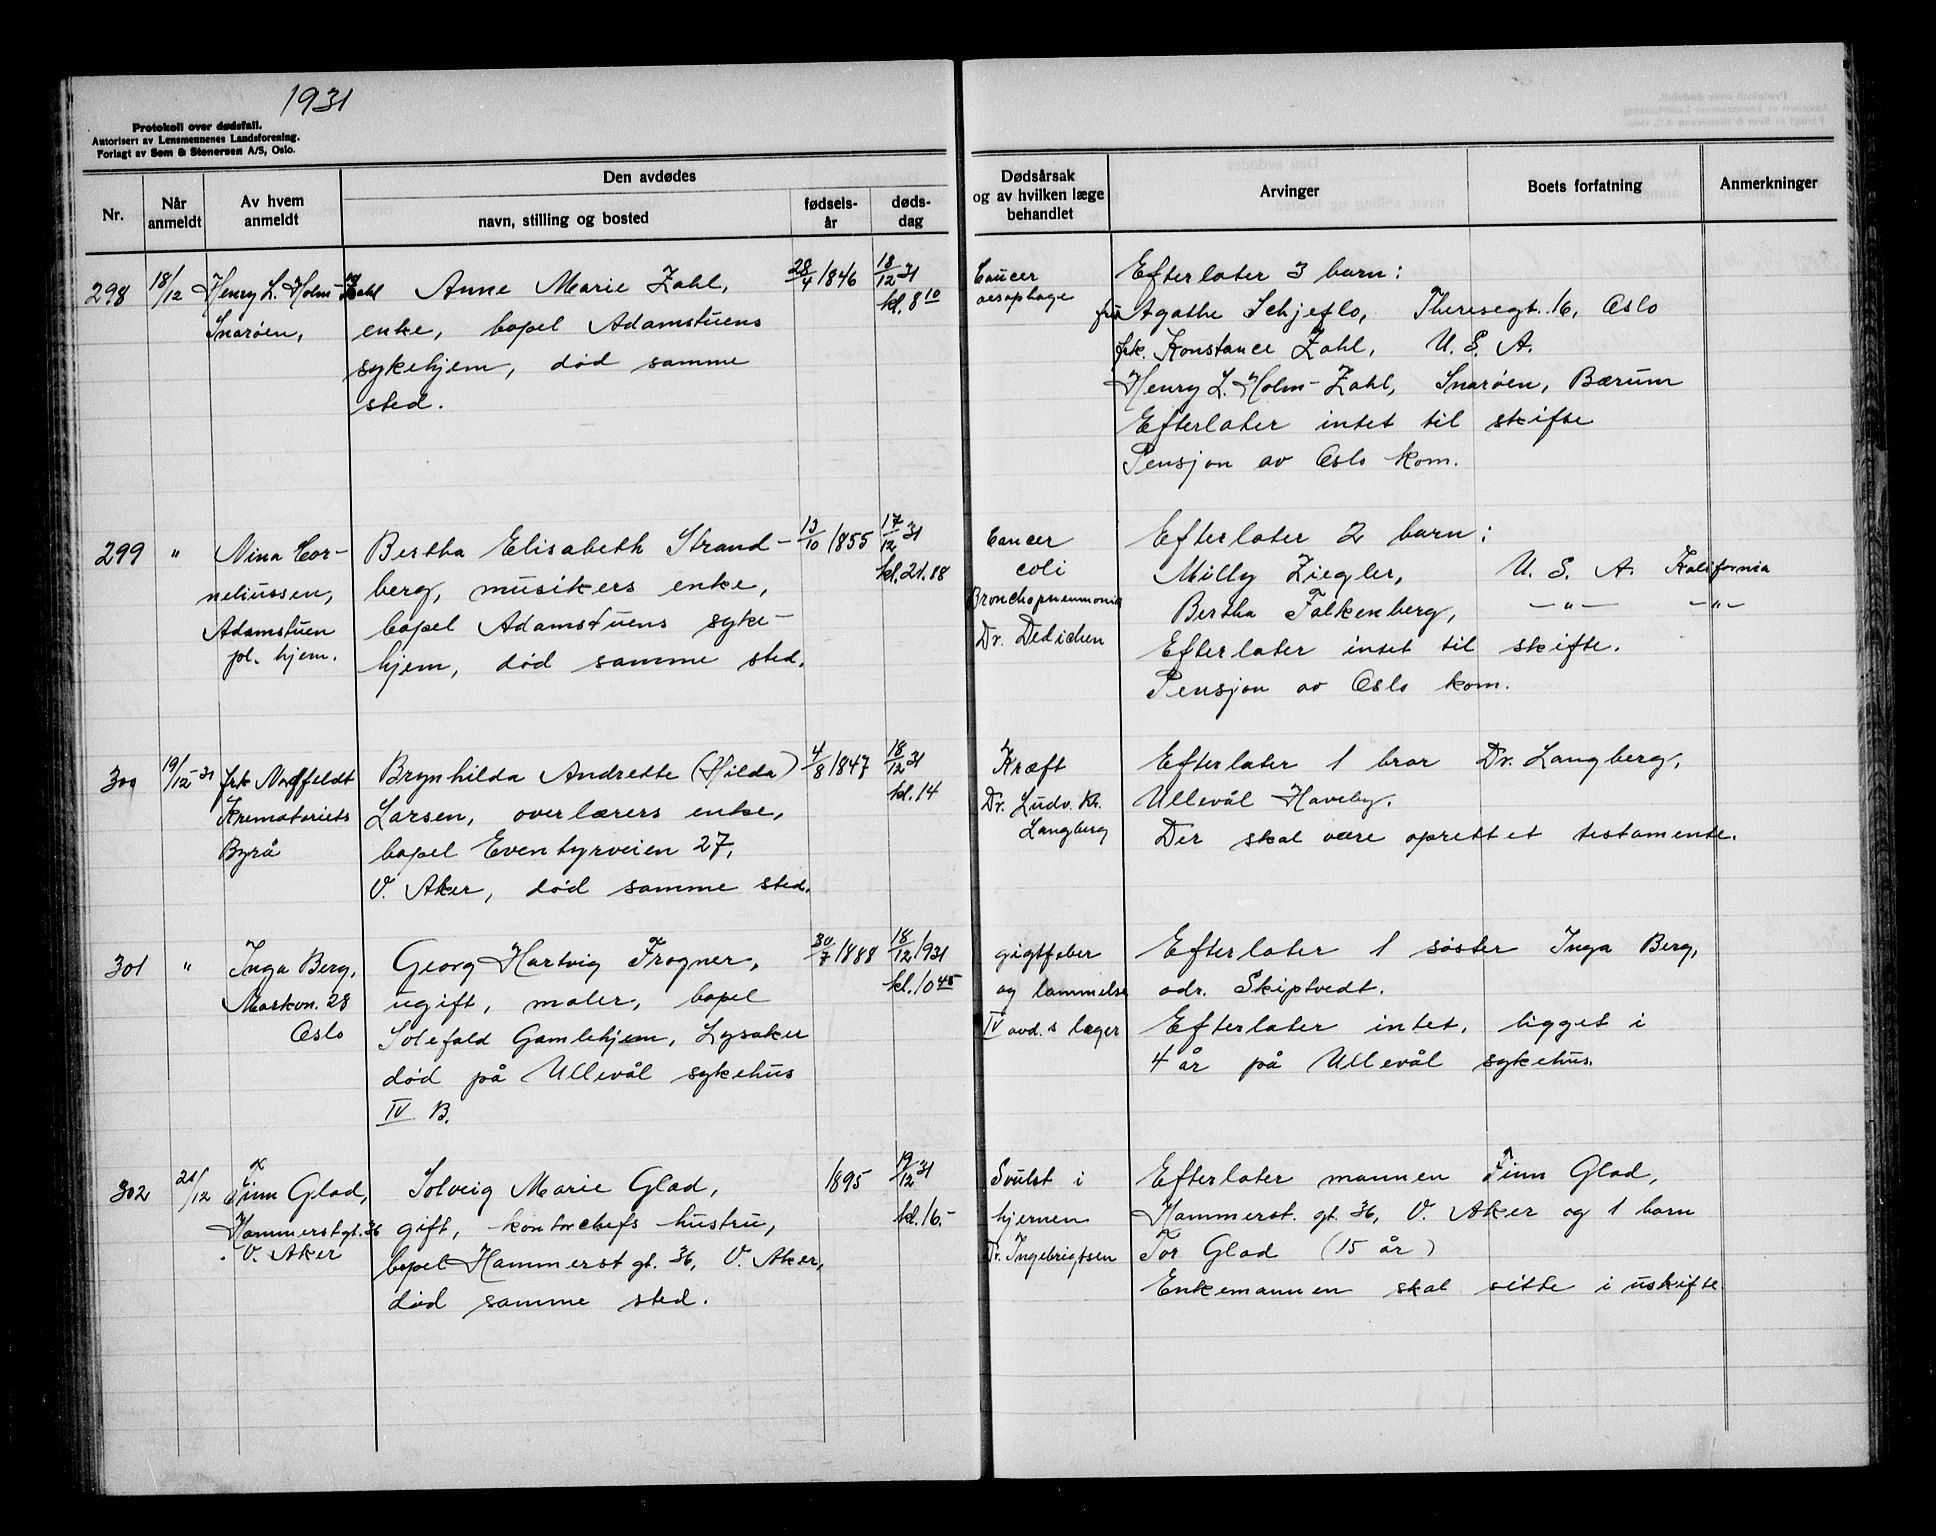 1931
Protokoll over dødsfall.
Autorisert av Lensmennenes Landsforening.
Forlagt av Sem & Stenersen A/S, Oslo.
Nr.
Når anmeldt
Av hvem anmeldt
Den avdødes
navn, stilling og bosted
fødsels-år
døds-dag
Dødsårsak og av hvilken læge behandlet
Arvinger
Boets forfatning
Anmerkninger
298
18/12
Henry L. Holm-Zahl
Snarøen,
Anne Marie Zahl,
enke, bopel Adamstuens
sykehjem, død samme
sted.
28/4 1846
18/12 31
kl. 8 10
Cancer
oesophage
Efterlater 3 barn:
fru Agathe Schjeflo, Theresegt. 16, Oslo
frk. Konstance Zahl, U. S. A.
Henry L. Holm-Zahl, Snarøen, Bærum
Efterlater intet til skifte
Pensjon av Oslo kom.
299
"
Nina Cor-
neliussen,
Adamstuen
pl. hjem.
Bertha Elisabeth Strand-
berg, musikers enke,
bopel Adamstuens syke-
hjem, død samme sted.
13/10 1855
17/12 31
kl. 21.18
Cancer
coli
Bronchopneumonia
Dr. Dedichen
Efterlater 2 barn:
Milly Ziegler, U. S. A. Kalifornia
Bertha Falkenberg, -"- -"-
Efterlater intet til skifte.
Pensjon av Oslo kom.
300
19/12-31
frk
Krematoriets
Byrå
Brynhilda Andrette (Hilda)
Larsen, overlærers enke,
bopel Eventyrveien 27,
V. Aker, død samme sted.
4/8 1847
18/12 31
kl. 14
Kræft
Dr. Ludv. Kr.
Langberg
Efterlater 1 bror Dr. Langberg,
Ullevål Haveby.
Der skal være oprettet testamente.
301
"
Inga Berg,
Markvn. 28
Oslo
Georg Hartvig Frogner,
ugift, maler, bopel
Solefald Gamlehjem, Lysaker
død på Ullevål sykehus
IV B.
30/7 1888
18/12 1931
kl. 10 45
gigtfeber
og lammelse
IV avd.s læger
Efterlater 1 søster Inga Berg,
adr. Skiptvedt.
Efterlater intet, ligget i
4 år på Ullevål sykehus.
302
21/12
Finn Glad,
Hammerstgt. 36
V. Aker
Solveig Marie Glad,
gift, kontorchefs hustru,
bopel Hammerst gt. 36, V. Aker,
død samme sted.
1895
19/12 31
kl. 16.-
Svulst i
hjernen
Dr. Ingebrigtsen
Efterlater mannen Finn Glad,
Hammerst. gt. 36, V. Aker og 1 barn
Tor Glad (15 år)
Enkemannen skal sitte i uskifte.